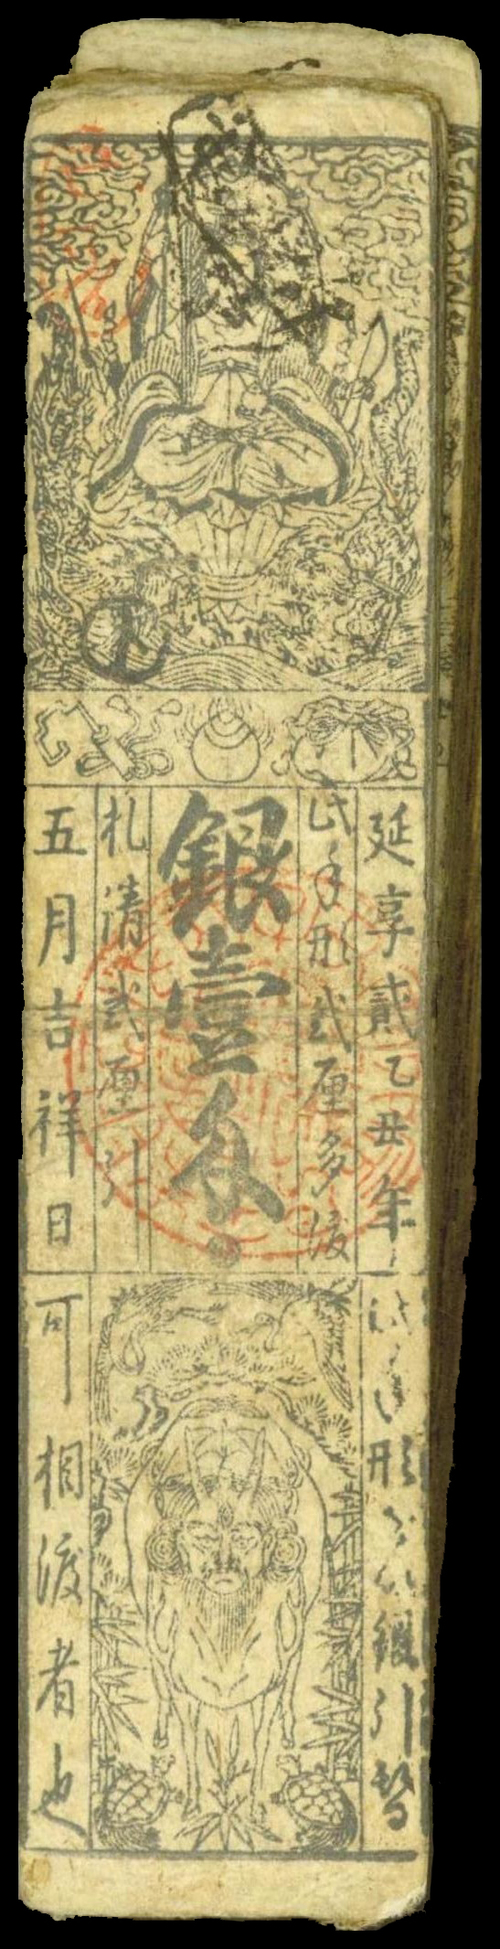 延享貳乙丑年
此手形弐厘多渡
銀壹匁
札清弐厘引
五月吉祥日
形
銀引替
可相渡者也